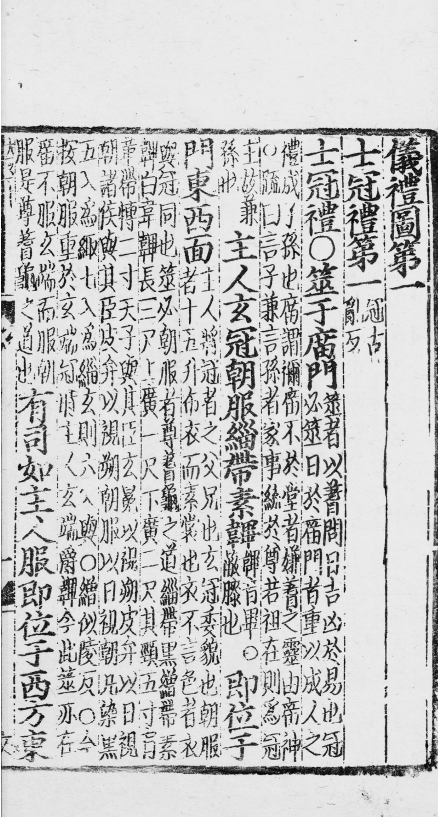 儀禮圖第一
士冠禮第一
冠古
亂反
士冠禮○筮于廟門
筮者以蓍問日吉凶於易也冠
必筮日於廟門者重以成人之
禮成子孫也廟謂禰廟不於堂者嫌蓍之靈由廟神
○疏曰言子兼言孫者家事統於尊若祖在則為冠
主故兼
孫也
主人玄冠朝服緇帶素韠
韠音畢○
蔽膝也
即位于
門東西面
主人將冠者之父兄也玄冠委貌也朝服
者十五升布衣而素裳也衣不言色者衣
與冠同也筮必朝服者尊蓍龜之道緇帶黑繒帶素
韠白韋韠長三尺上廣一尺下廣二尺其頸五寸肩
革帶博二寸天子與其臣玄冕以視朔皮弁以日視
朝諸侯與其臣皮弁以視朔朝服以日視朝凡染黑
五入為緅七入為緇玄則六入與○繒似陵反○今
按朝服重於玄端冠時主人玄端爵韠今此筮亦在
廟不服玄端而服朝
服是尊蓍龜之道也
有司如主人服即位于西方東